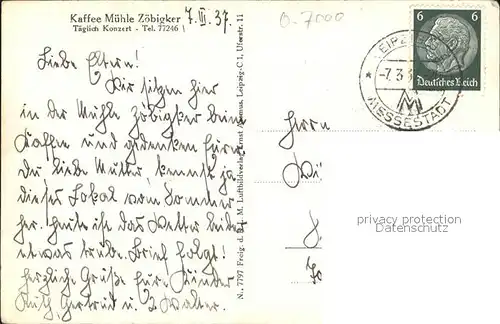 Kaffee Mühle Zöbigker
Täglich Konzert - Tel. 77246
7. III. 37.
Liebe Eltern!
Wir sitzen hier
in der Mühle Zöbigker beim
Kaffee und gedenken Eurer.
Du liebe Mutter, kennst ja
dieses Lokal vom Sommer
her. Heute ist das Wetter leider
etwas trübe. Brief folgt!
Herzliche Grüße Eure Kinder
Ruth, Gertrud u. Walter.
N., 7797 Freig. d. M. Luftbildverlag Ernst Leipzig-C 1, Uferstr. 11
0-7000
6 6
Deutsches Reich
LEIPZIG
-7.3.3
M
MESSESTADT
Herrn
privacy protection
Datenschutz